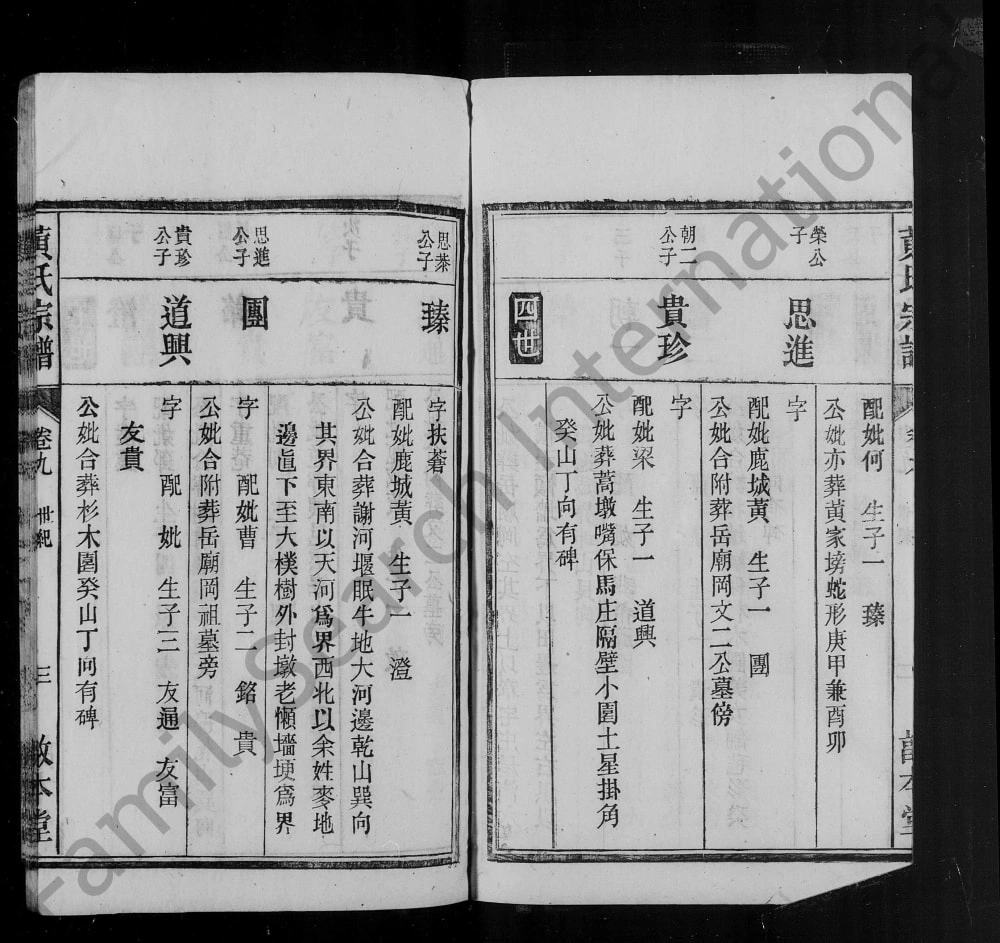 配妣何 生子一 瑧
公妣亦葬黃家塝蛇形庚甲兼酉卯
榮公子
思進
字
配妣鹿城黃 生子一 團
公妣合附葬岳廟岡文二公墓傍
朝二公子
貴珍
字
配妣梁 生子一 道興
公妣葬蒿墩嘴保馬庄隔壁小園土星掛角
癸山丁向有碑
四世
思恭公子
瑧
字扶蒼
配妣鹿城黃 生子一 澄
公妣合葬謝河堰眠牛地大河邊乾山巽向
其界東南以天河爲界西北以余姓麥地
邊直下至大樸樹外封墩老懶墻埂爲界
思進公子
團
字 配妣曹 生子二 銘 貴
公妣合附葬岳廟岡祖墓旁
貴珍公子
道興
字 配妣 生子三 友通 友富
友貴
公妣合葬杉木園癸山丁向有碑
黃氏宗譜 卷九 世紀 三 敦本堂
FamilySearch International